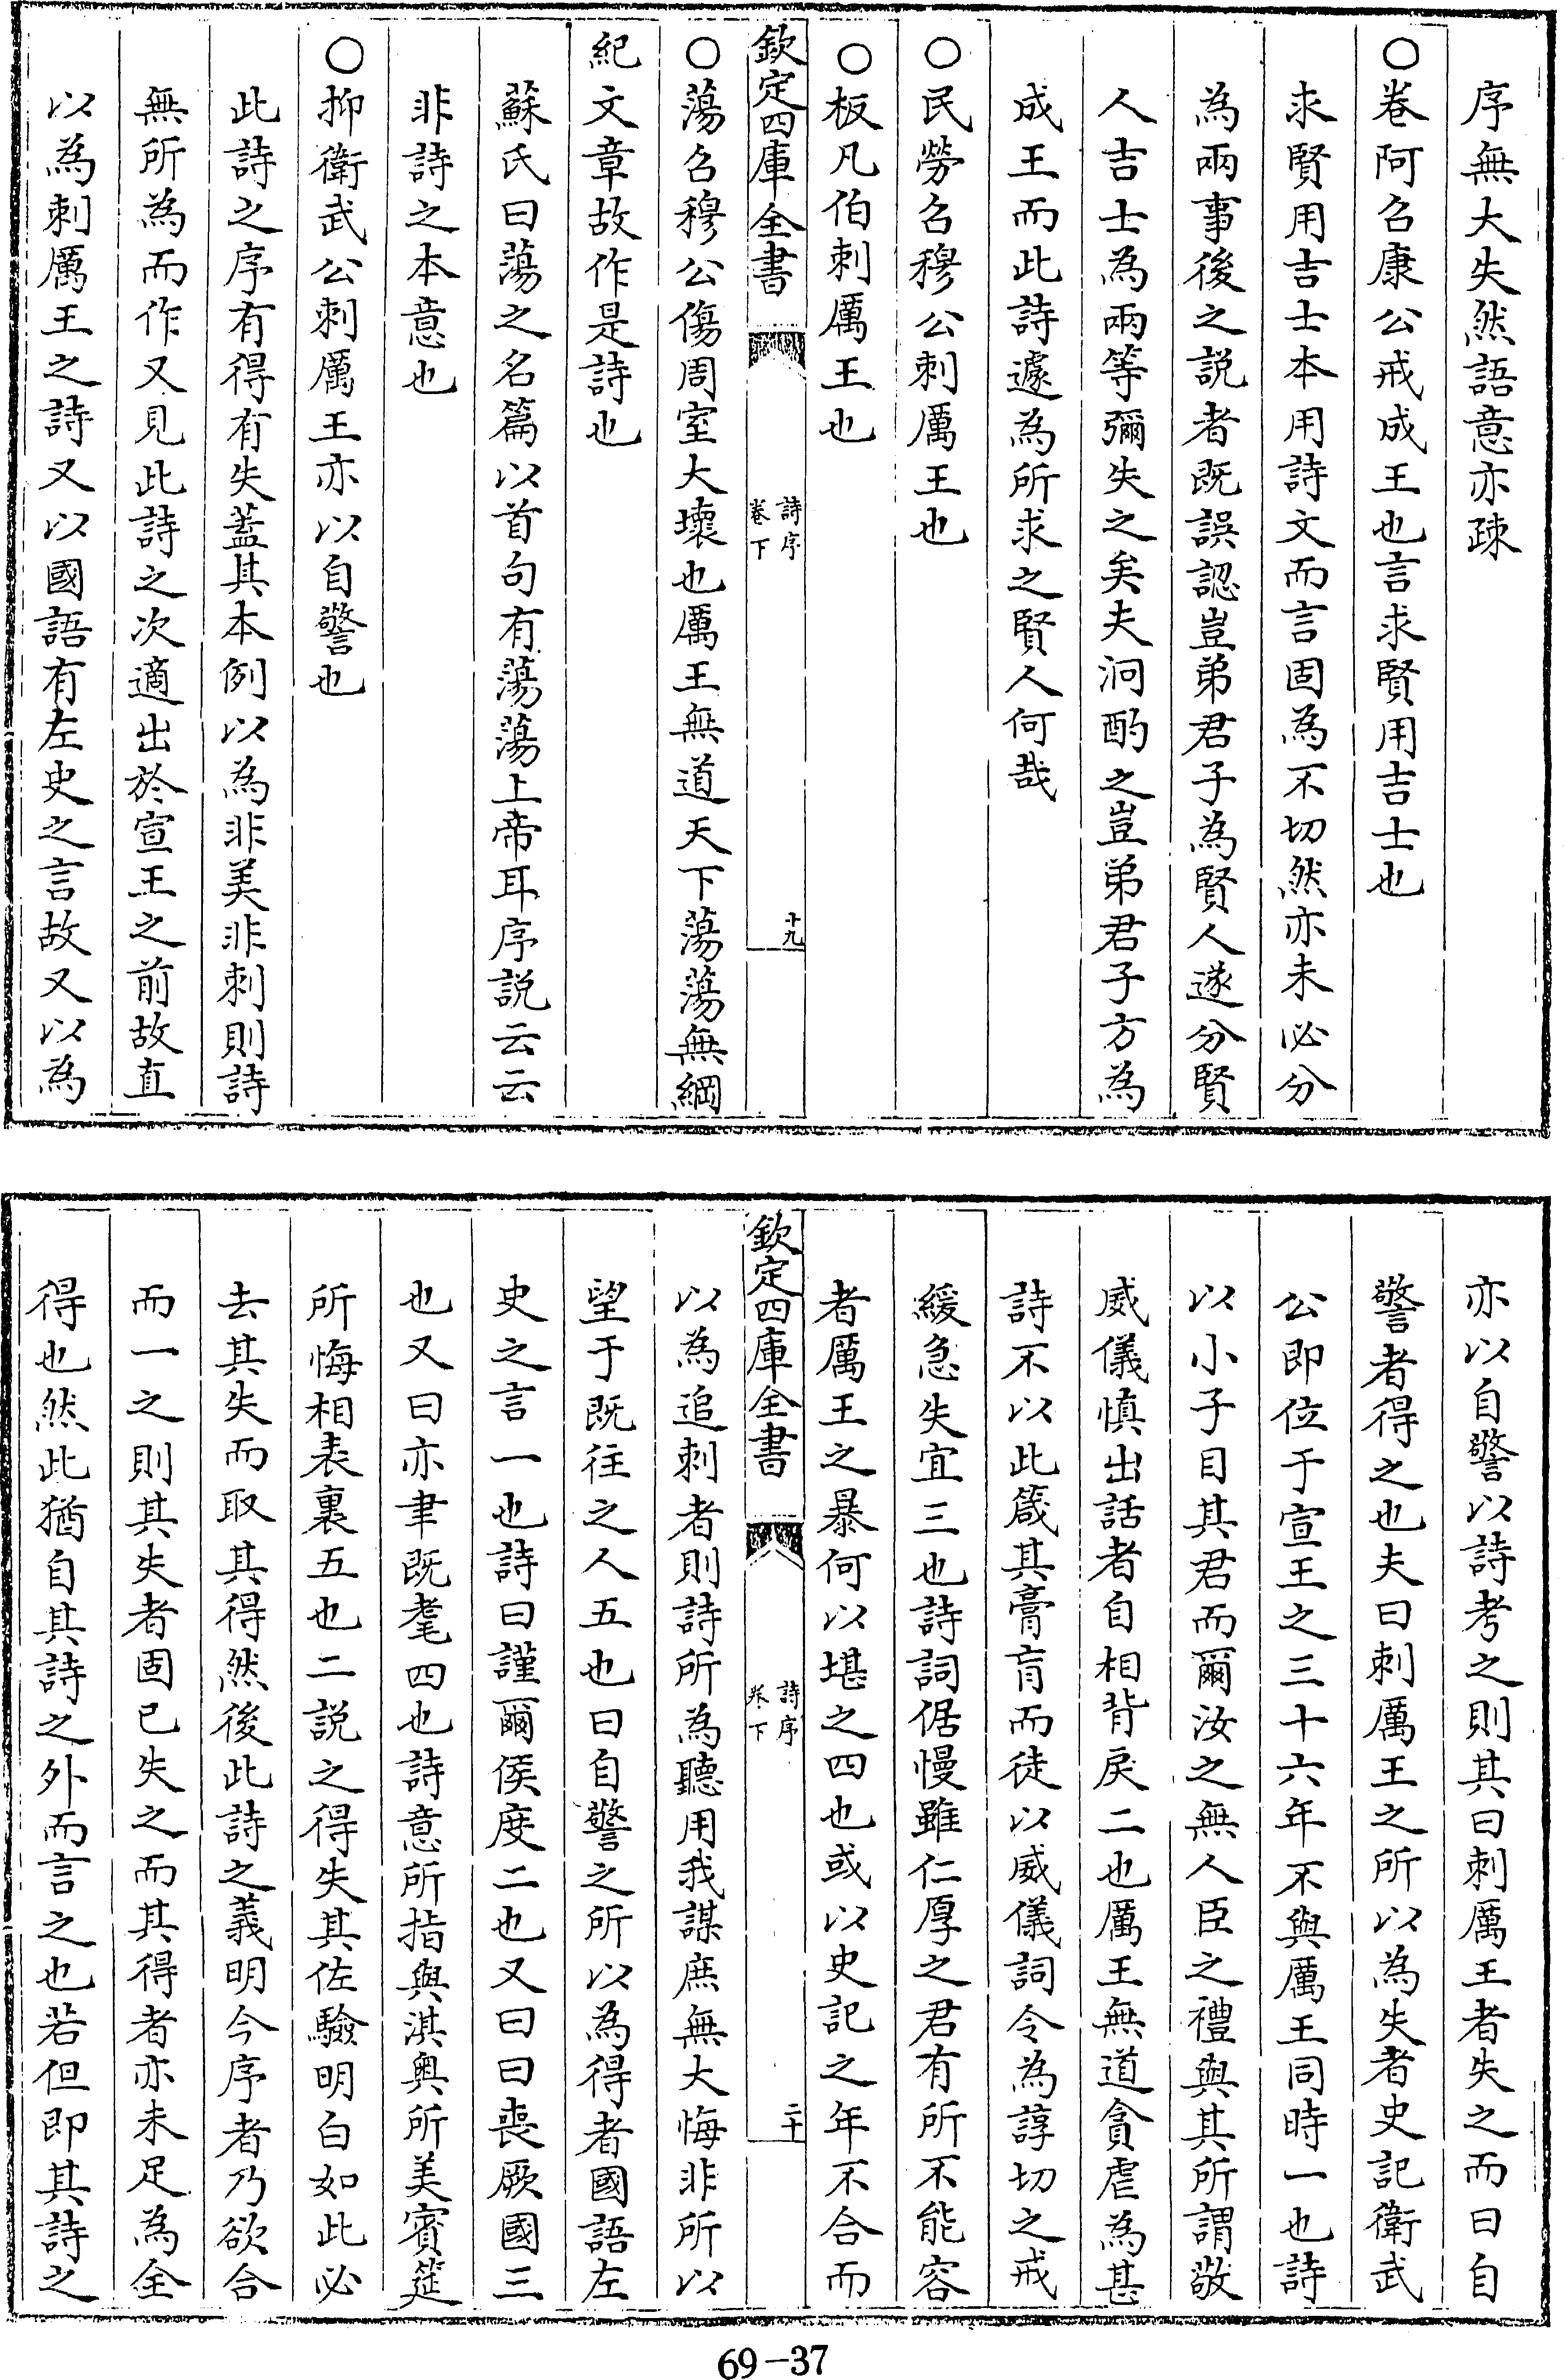 序無大失然語意亦疎
○卷阿召康公戒成王也言求賢用吉士也
求賢用吉士本用詩文而言固為不切然亦未必分
為兩事後之説者既誤認豈弟君子為賢人遂分賢
人吉士為兩等彌失之矣夫泂酌之豈弟君子方為
成王而此詩遽為所求之賢人何哉
○民勞召穆公刺厲王也
○板凡伯刺厲王也
欽定四庫全書 詩序卷下 十九
○蕩召穆公傷周室大壞也厲王無道天下蕩蕩無綱
紀文章故作是詩也
蘇氏曰蕩之名篇以首句有蕩蕩上帝耳序説云云
非詩之本意也
○抑衛武公刺厲王亦以自警也
此詩之序有得有失蓋其本例以為非美非刺則詩
無所為而作又見此詩之次適出於宣王之前故直
以為刺厲王之詩又以國語有左史之言故又以為
亦以自警以詩考之則其曰刺厲王者失之而曰自
警者得之也夫曰刺厲王之所以為失者史記衛武
公即位于宣王之三十六年不與厲王同時一也詩
以小子目其君而爾汝之無人臣之禮與其所謂敬
威儀慎出話者自相背戾二也厲王無道貪虐為甚
詩不以此箴其膏肓而徒以威儀詞令為諄切之戒
緩急失宜三也詩詞倨慢雖仁厚之君有所不能容
者厲王之暴何以堪之四也或以史記之年不合而
欽定四庫全書 詩序卷下 二十
以為追刺者則詩所為聽用我謀庶無大悔非所以
望于既往之人五也曰自警之所以為得者國語左
史之言一也詩曰謹爾侯度二也又曰曰喪厥國三
也又曰亦聿既耄四也詩意所指與淇奥所美賓筵
所悔相表裏五也二説之得失其佐驗明白如此必
去其失而取其得然後此詩之義明今序者乃欲合
而一之則其失者固已失之而其得者亦未足為全
得也然此猶自其詩之外而言之也若但即其詩之
69-37